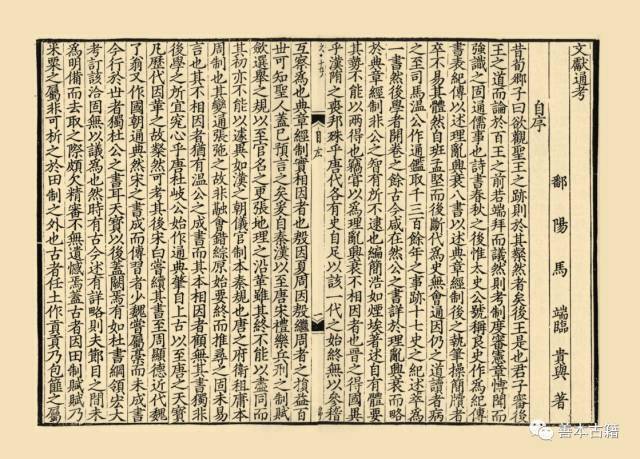 文獻通考
自序
鄱陽馬端臨貴與著
昔荀卿子曰欲觀聖王之跡則於其粲然者矣後王是也君子審後
王之道而論於百王之前若端拜而議然則考制度審憲章博聞而
強識之固通儒事也詩書春秋之後惟太史公號稱良史作為紀傳
書表紀傳以述理亂興衰八書以述典章經制後之執筆操簡牘者
卒不易其體然自班孟堅而後斷代為史無會通因仍之道讀者病
之至司馬溫公作通鑑取千三百餘年之事跡十七史之紀述萃為
一書然後學者開卷之餘古今咸在然公之書詳於理亂興衰而略
於典章經制非公之智有所不逮也編簡浩如煙埃著述自有體要
其勢不能以兩得也竊嘗以為理亂興衰不相因者也晉之得國異
乎漢隋之喪邦殊乎唐代各有史自足以該一代之始終無以參稽
互察為也典章經制實相因者也殷因夏周因殷繼周者之損益百
世可知聖人蓋已預言之矣爰自秦漢以至唐宋禮樂兵刑之制賦
斂選舉之規以至官名之更張地理之沿革雖其終不能以盡同而
其初亦不能以遽異如漢之朝儀官制本秦規也唐之府衛租庸本
周制也其變通張弛之故非融會錯綜原始要終而推尋之固未易
言也其不相因者猶有溫公之成書而其本相因者顧無其書獨非
後學之所宜究心乎唐杜岐公始作通典肇自上古以至唐之天寶
凡歷代因革之故粲然可考其後宋白嘗續其書至周顯德近代魏
了翁又作國朝通典然宋之書成而傳習者少魏嘗屬藁而未成書
今行於世者獨杜公之書耳天寶以後蓋闕焉有如杜書綱領宏大
考訂該洽固無以議為也然時有古今述有詳略則夫節目之間未
為明備而去取之際頗欠精審不無遺憾焉蓋古者因田制賦賦乃
米粟之屬非可析之於田制之外也古者任土作貢貢乃包篚之屬
善本古籍